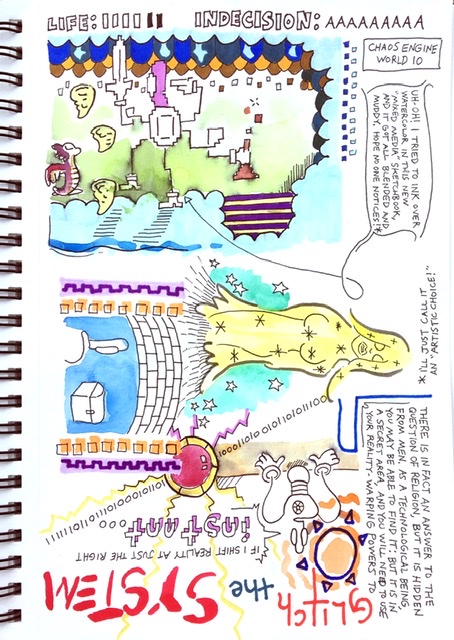 LIFE: IIIIII
INDECISION: AAAAAAAAA
CHAOS ENGINE
WORLD 10
UH-OH! I TRIED TO INK OVER
WATERCOLOR IN THIS NEW
"MIXED MEDIA" SKETCHBOOK,
AND IT GOT ALL BLENDED AND
MUDDY. HOPE NO ONE NOTICES!*
*I'LL JUST CALL IT
AN "ARTISTIC CHOICE!"
THERE IS IN FACT AN ANSWER TO THE
QUESTION OF RELIGION, BUT IT IS HIDDEN
FROM MEN. AS A TECHNOLOGICAL BEING,
YOU MAY BE ABLE TO FIND IT. BUT IT IS IN
A SECRET AREA, AND YOU WILL NEED TO USE
YOUR REALITY-WARPING POWERS TO
GLITCH
the
SYSTEM
IF I SHIFT REALITY AT JUST THE RIGHT
instant